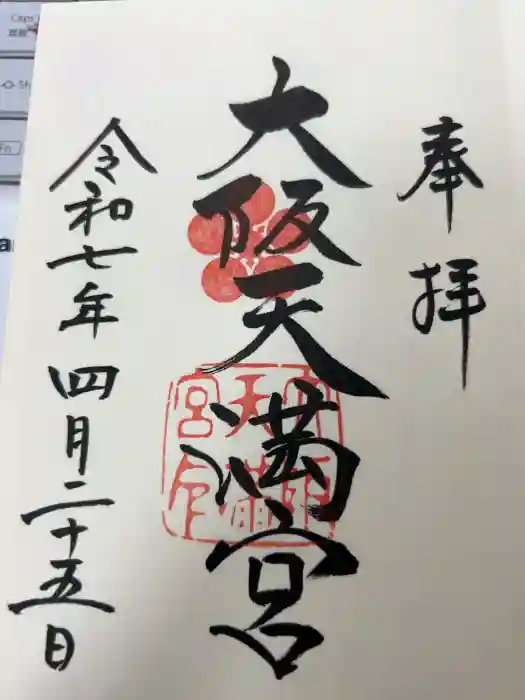 奉拝
大阪天満宮
令和七年四月二十五日
Caps
Fn